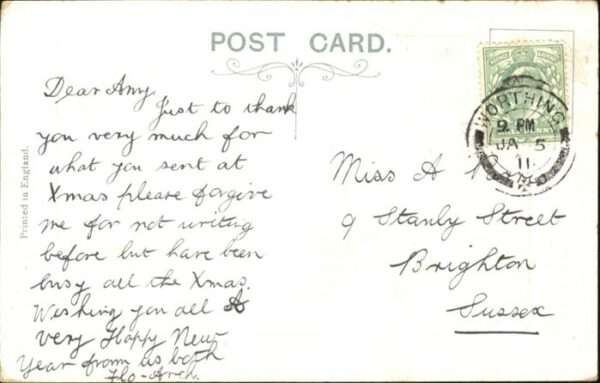 POST CARD.
Printed in England.
Dear Amy
Just to thank
you very much for
what you sent at
Xmas please forgive
me for not writing
before but have been
busy all the Xmas.
Wishing you all A
very Happy New
Year from us both
Flo - Arch.
WORTHING
9. PM
JA 5
11
Miss A
9 Stanly Street
Brighton
Sussex